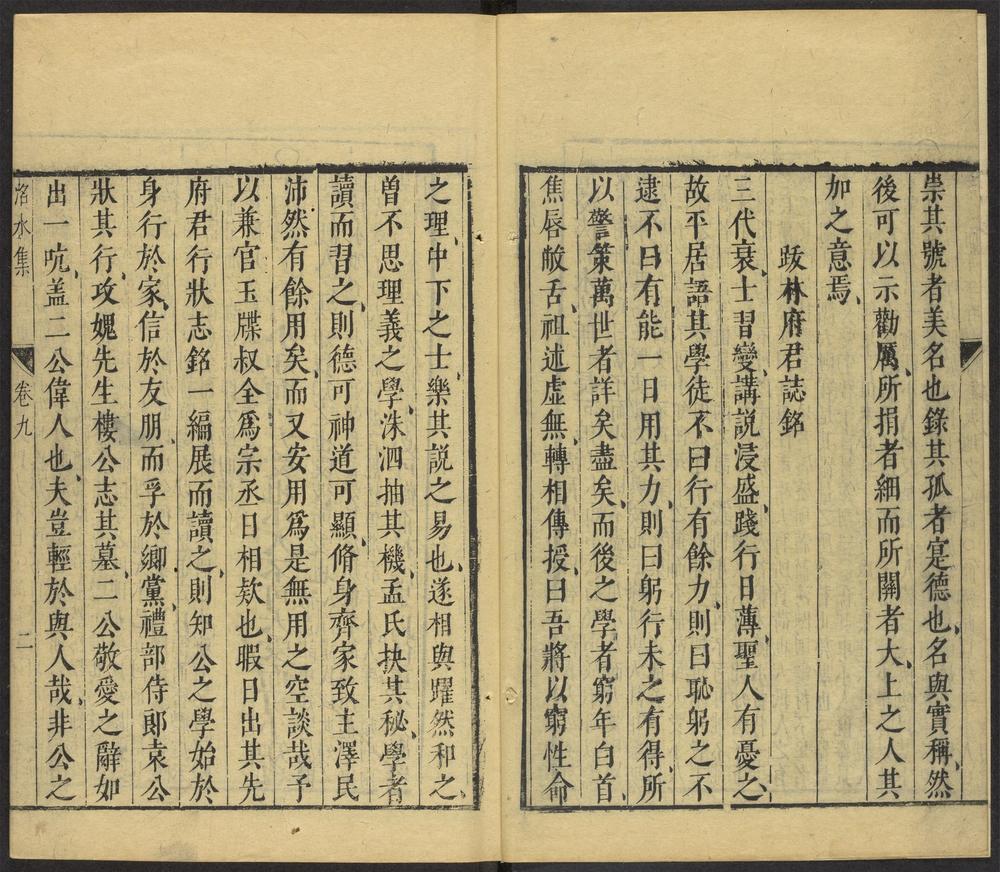 崇其號者美名也錄其孤者寔德也名與實稱然
後可以示勸厲所捐者細而所關者大上之人其
加之意焉
跋林府君誌銘
三代衰士習變講説浸盛踐行日薄聖人有憂之
故平居語其學徒不曰行有餘力則曰恥躬之不
逮不曰有能一日用其力則曰躬行未之有得所
以警策萬世者詳矣盡矣而後之學者窮年白首
焦唇敝舌祖述虛無轉相傳授曰吾將以窮性命
之理中下之士樂其説之易也遂相與躍然和之
曽不思理義之學洙泗抽其機孟氏抉其秘學者
讀而習之則德可神道可顯脩身齊家致主澤民
沛然有餘用矣而又安用爲是無用之空談哉予
以兼官玉牒叔全爲宗丞日相欵也暇日出其先
府君行狀志銘一編展而讀之則知公之學始於
身行於家信於友朋而孚於鄉黨禮部侍郎袁公
狀其行攻媿先生樓公志其墓二公敬愛之辭如
出一吭盖二公偉人也夫豈輕於與人哉非公之
洺水集
卷九
二